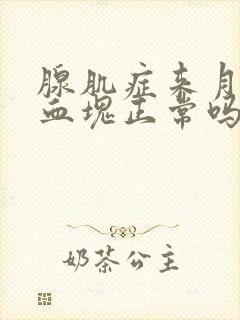 腺肌症来月
血块正常吗
奶茶公主